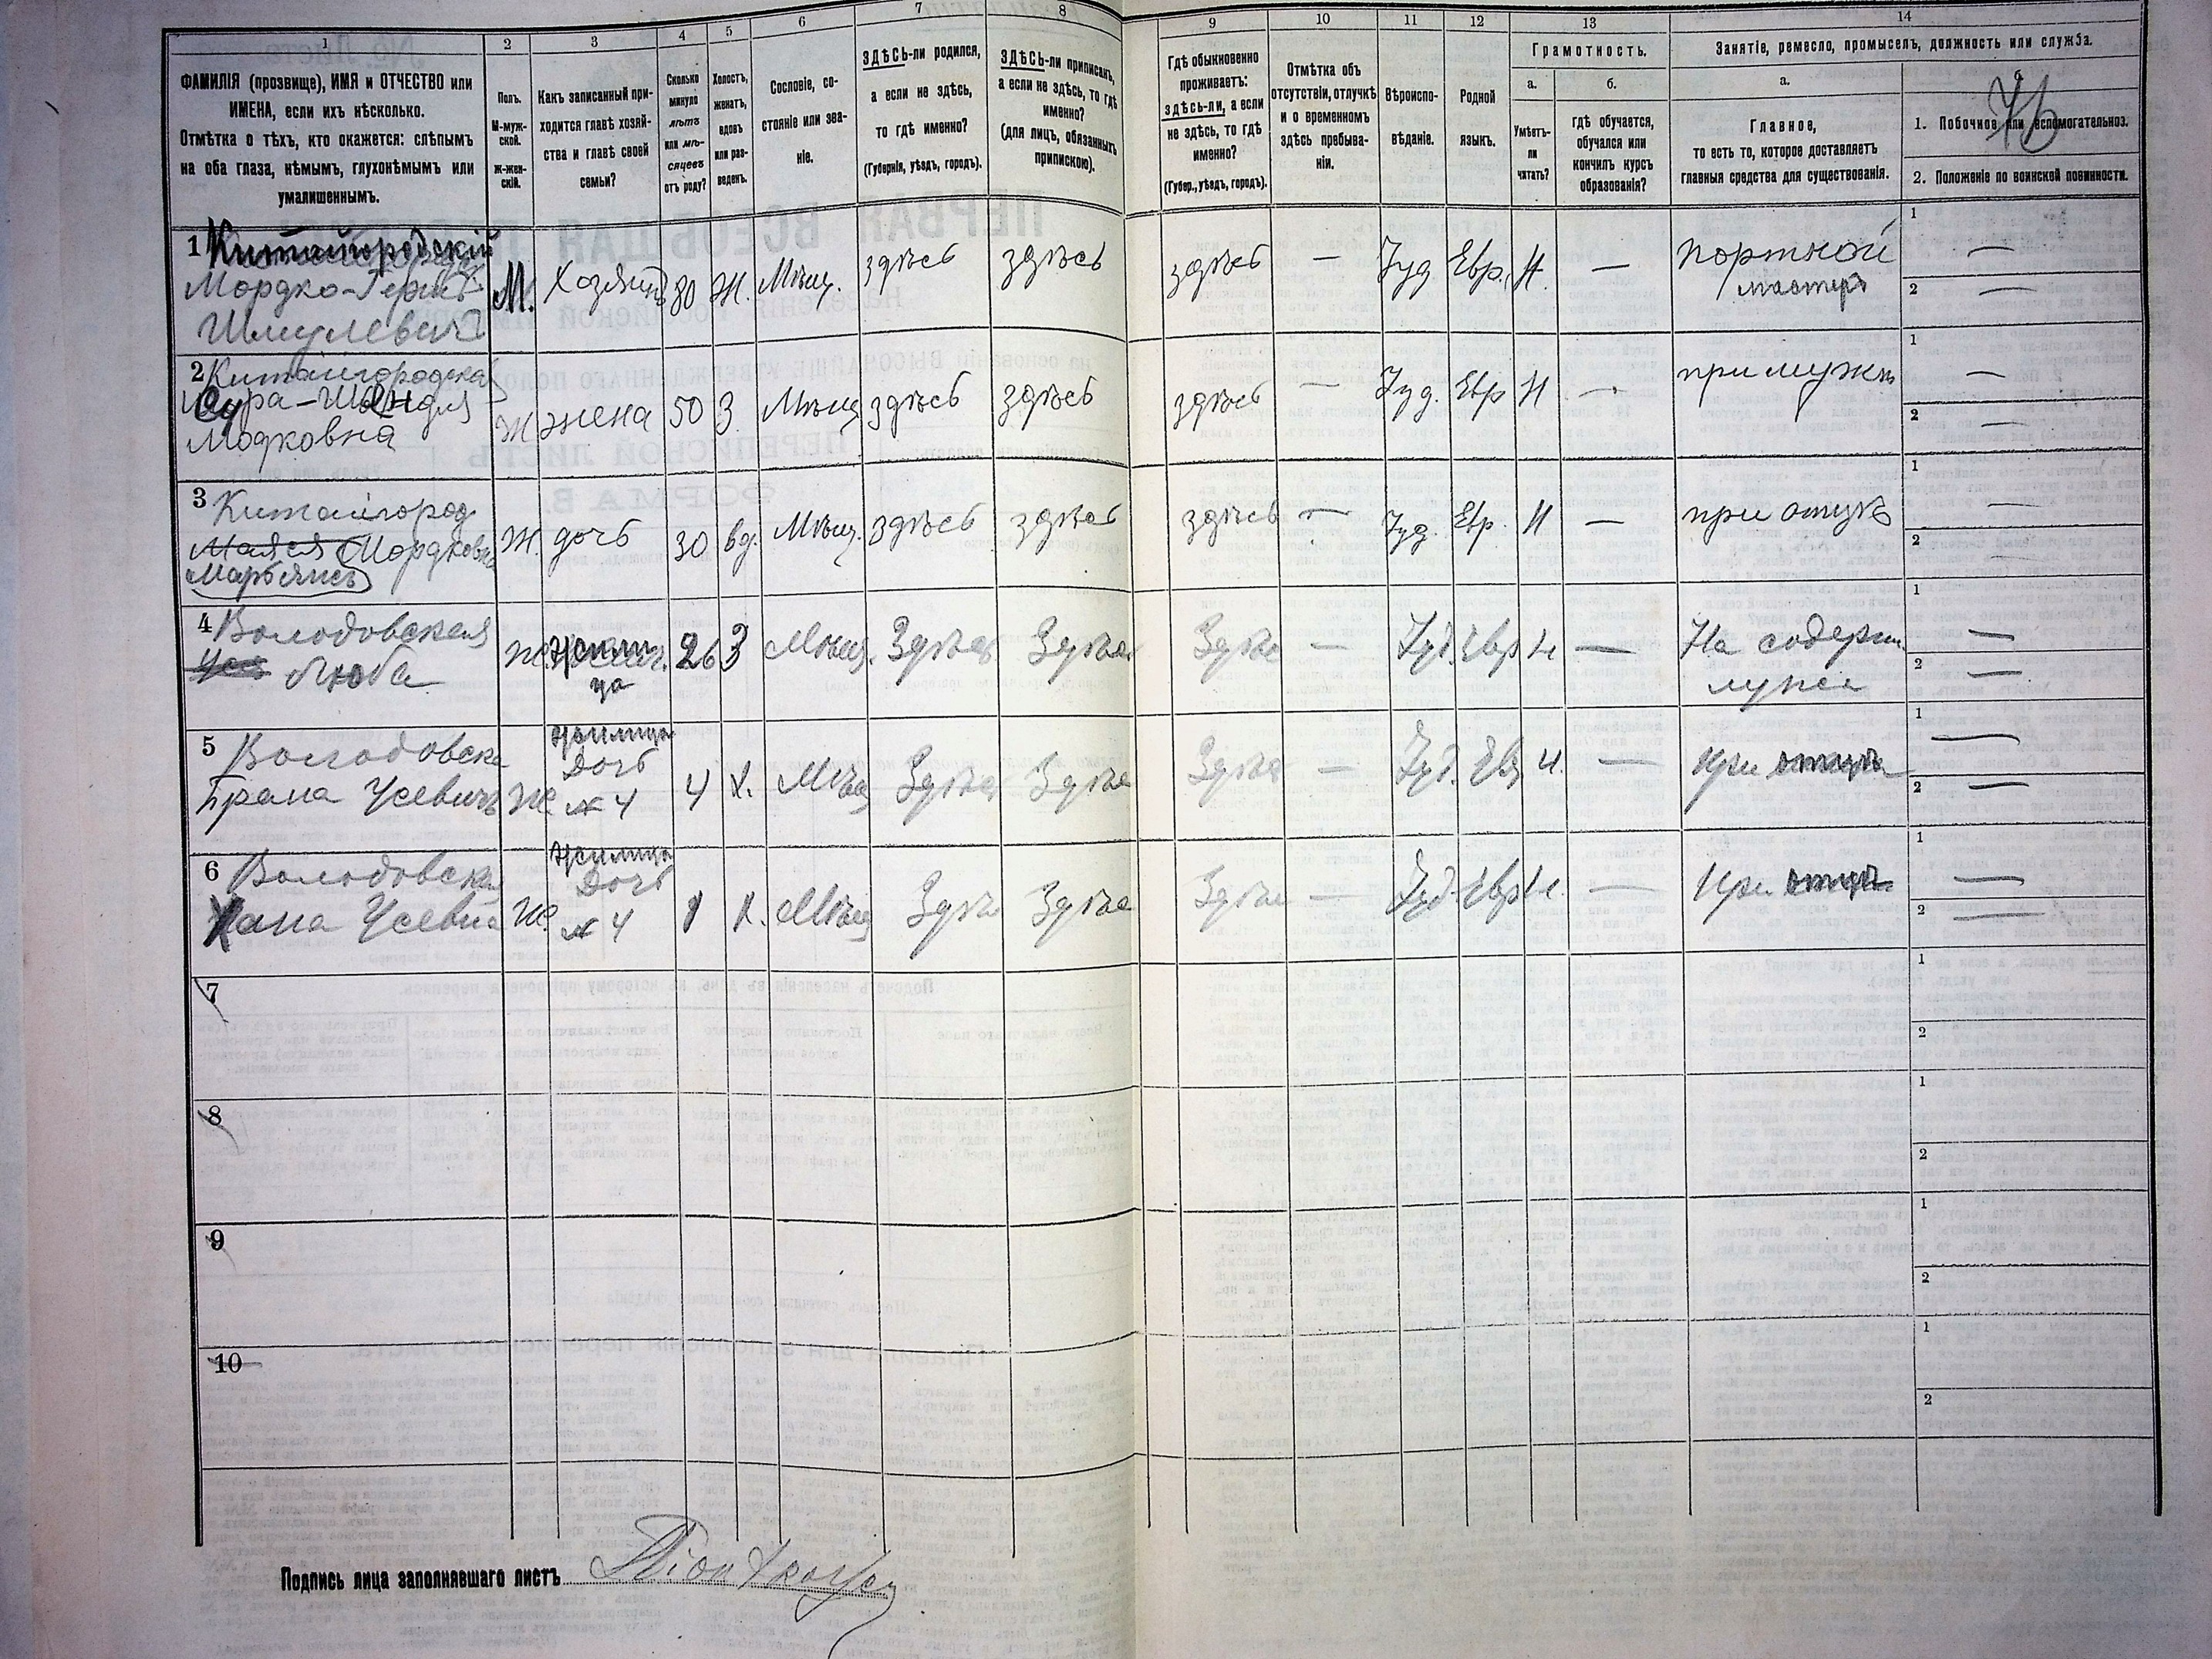 1 2 3 4 5 6 7 8 9 10 11 12 13 14
ФАМИЛІЯ (прозвище), ИМЯ и ОТЧЕСТВО или
ИМЕНА, если ихъ нѣсколько.
Отмѣтка о тѣхъ, кто окажется: слѣпымъ
на оба глаза, нѣмымъ, глухонѣмымъ или
умалишеннымъ.
Полъ.
М-муж-
ской.
ж-жен-
скій.
Какъ записанный при-
ходится главѣ хозяй-
ства и главѣ своей
семьи?
Сколько
минуло
лѣтъ
или мѣ-
сяцевъ
отъ роду?
Холостъ,
женатъ,
вдовъ
или раз-
веденъ.
Сословіе, со-
стояніе или зва-
ніе.
ЗДѢСЬ-ли родился,
а если не здѣсь,
то гдѣ именно?
(Губернія, уѣздъ, городъ).
ЗДѢСЬ-ли приписанъ,
а если не здѣсь, то гдѣ
именно?
(для лицъ, обязанныхъ
припискою).
Гдѣ обыкновенно
проживаетъ:
здѣсь-ли, а если
не здѣсь, то гдѣ
именно?
(Губер., уѣздъ, городъ).
Отмѣтка объ
отсутствіи, отлучкѣ
и о временномъ
здѣсь пребыва-
ніи.
Вѣроиспо-
вѣданіе.
Родной
языкъ.
Грамотность.
а.
Умѣетъ-
ли
читать?
б.
гдѣ обучается,
обучался или
кончилъ курсъ
образованія?
Занятіе, ремесло, промыселъ, должность или служба.
а.
Главное,
то есть то, которое доставляетъ
главныя средства для существованія.
1. Побочное или вспомогательное.
2. Положеніе по воинской повинности.
1 Китайгородскій
Мордко-Гершъ
Шмулевичъ
М. Хозяинъ 80 Ж. Мѣщ. здѣсь здѣсь здѣсь — Іуд Евр. Н. — портной
мастеръ
1 —
2 —
2 Китайгородска
Модковна
Ж жена 50 З Мѣщ здѣсь здѣсь здѣсь — Іуд. Евр Н — при мужѣ
1 —
2 —
3 Китайгород
Мордковн
Марьясь
Ж. дочь 30 вд. Мѣщ. здѣсь здѣсь здѣсь — Іуд. Евр. Н — при отцѣ
1 —
2 —
4 Володовская
Люба
Ж. жили
ца
26 З Мѣщ. Здѣсь Здѣсь Здѣсь — Іуд. Евр Н — На содерж.
мужа
1 —
2 —
5 Володовска
Брана Усевичъ
Ж. жилица
Дочь
№ 4
4 Х. Мѣщ Здѣсь Здѣсь Здѣсь — Іуд. Евр Н. — При отцѣ
1 —
2 —
6 Володовска
Хана Усевич
Ж. жилица
Дочь
№ 4
1 Х. Мѣщ Здѣсь Здѣсь Здѣсь — Іуд. Евр Н. — При отцѣ
1 —
2 —
7 1
2
8 1
2
9 1
2
10 1
2
Подпись лица заполнявшаго листъ